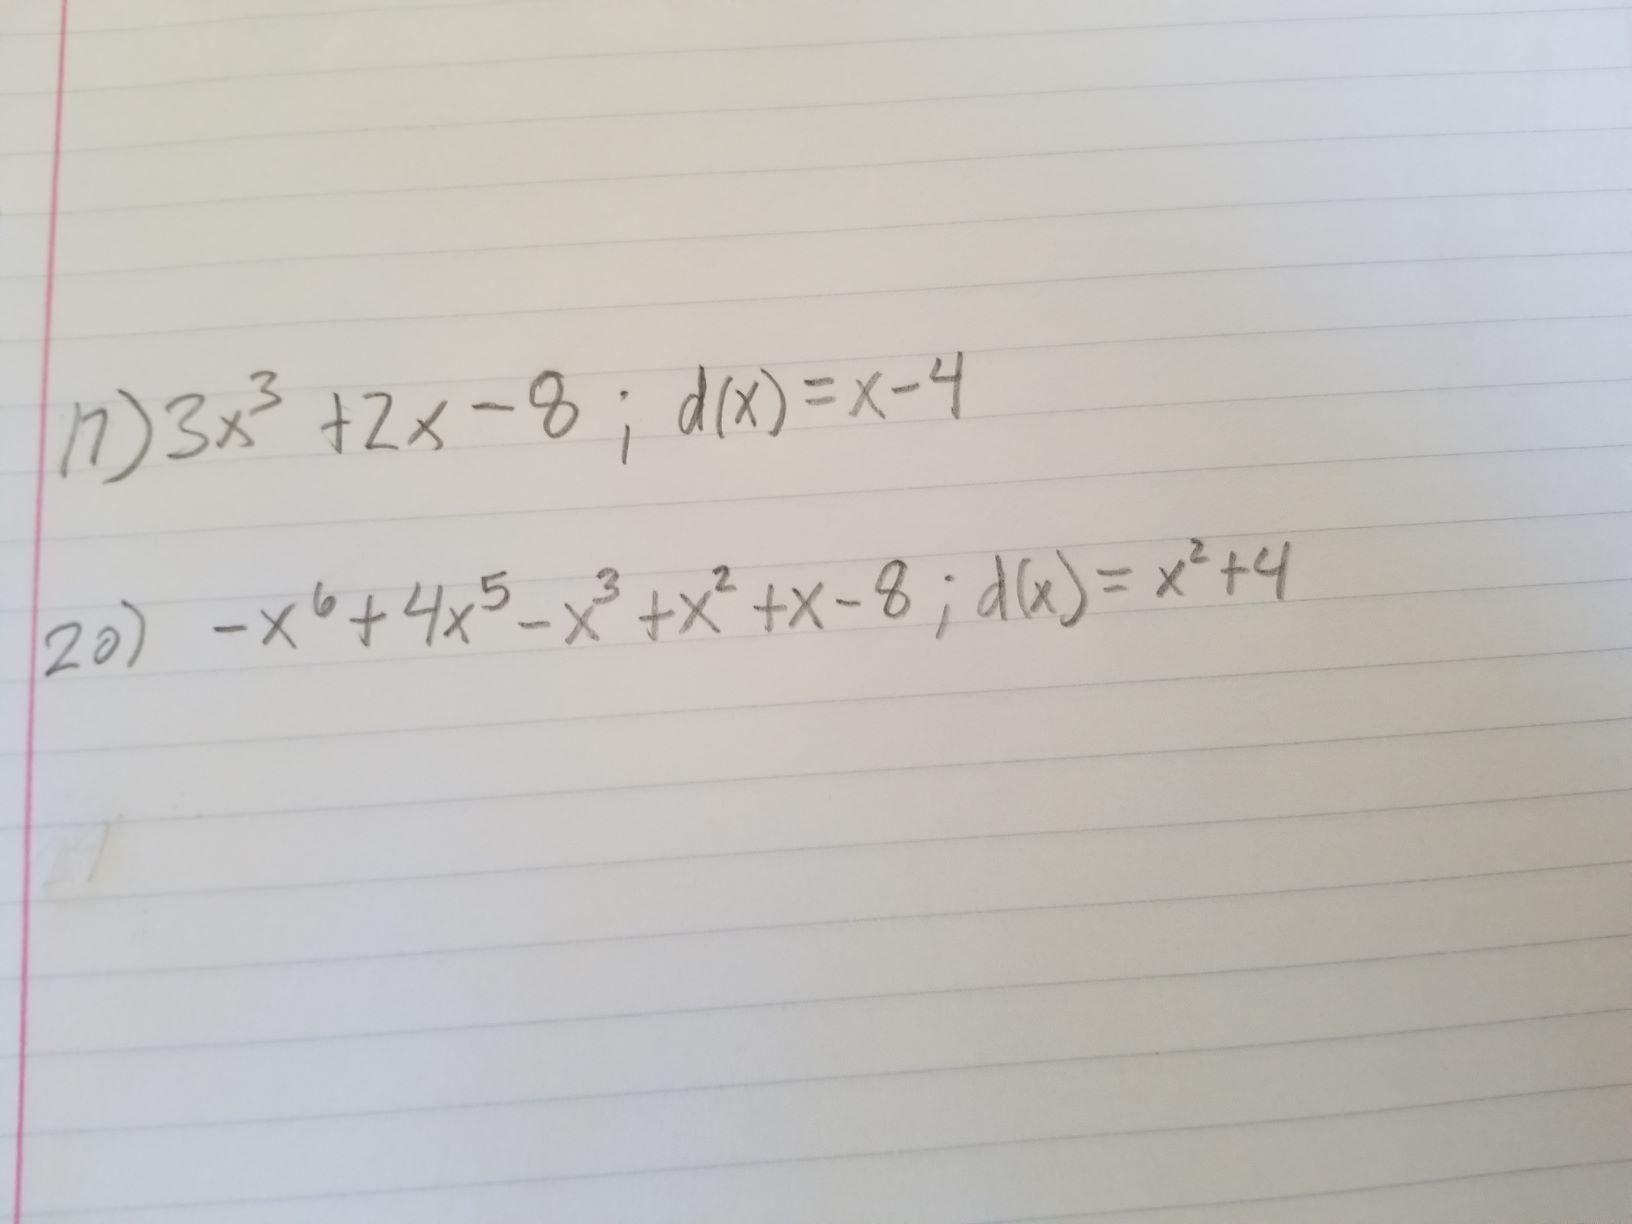 17) 3x³ +2x-8 ; d(x) = x-4
20) -x⁶+4x⁵-x³+x²+x-8; d(x) = x²+4